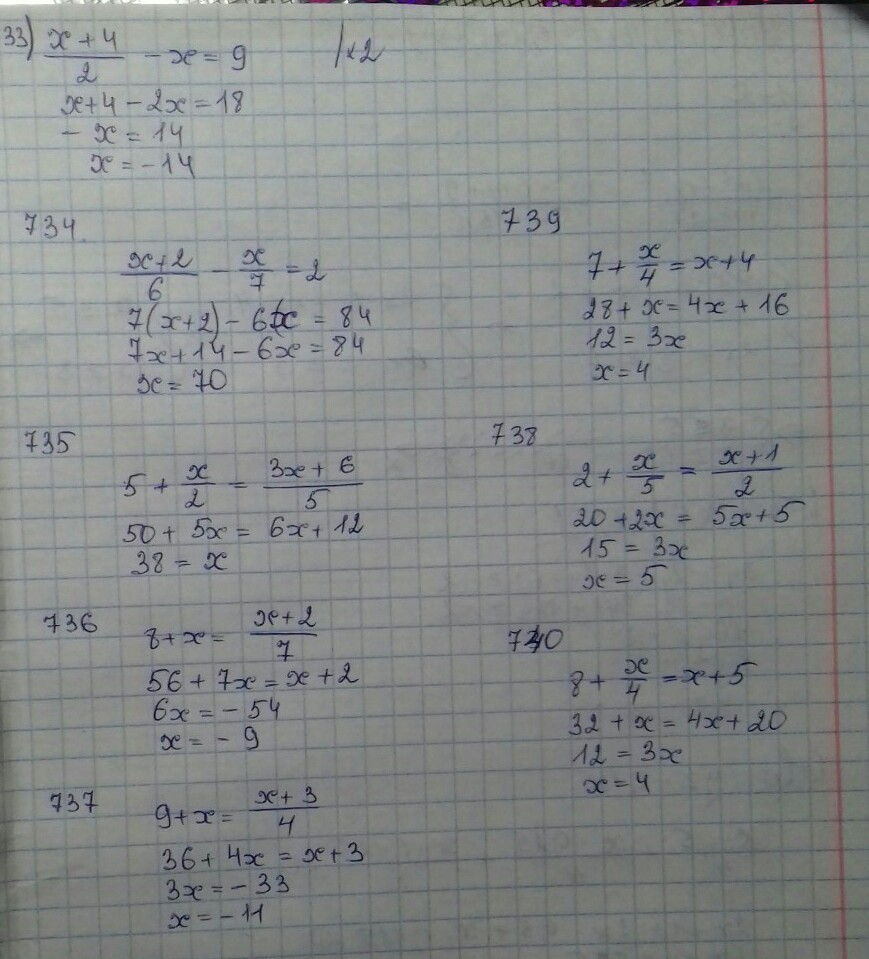 33) (x + 4)/2 - x = 9 /×2
x+4 - 2x = 18
- x = 14
x = -14
734.
(x+2)/6 - x/7 = 2
7(x+2) - 6x = 84
7x+14 - 6x = 84
x = 70
735
5 + x/2 = (3x + 6)/5
50 + 5x = 6x + 12
38 = x
736
8+x = (x+2)/7
56 + 7x = x + 2
6x = - 54
x = - 9
737
9+x = (x+3)/4
36+4x = x+3
3x = - 33
x = - 11
739
7 + x/4 = x+4
28 + x = 4x + 16
12 = 3x
x = 4
738
2 + x/5 = (x+1)/2
20 + 2x = 5x + 5
15 = 3x
x = 5
740
8 + x/4 = x + 5
32 + x = 4x + 20
12 = 3x
x = 4